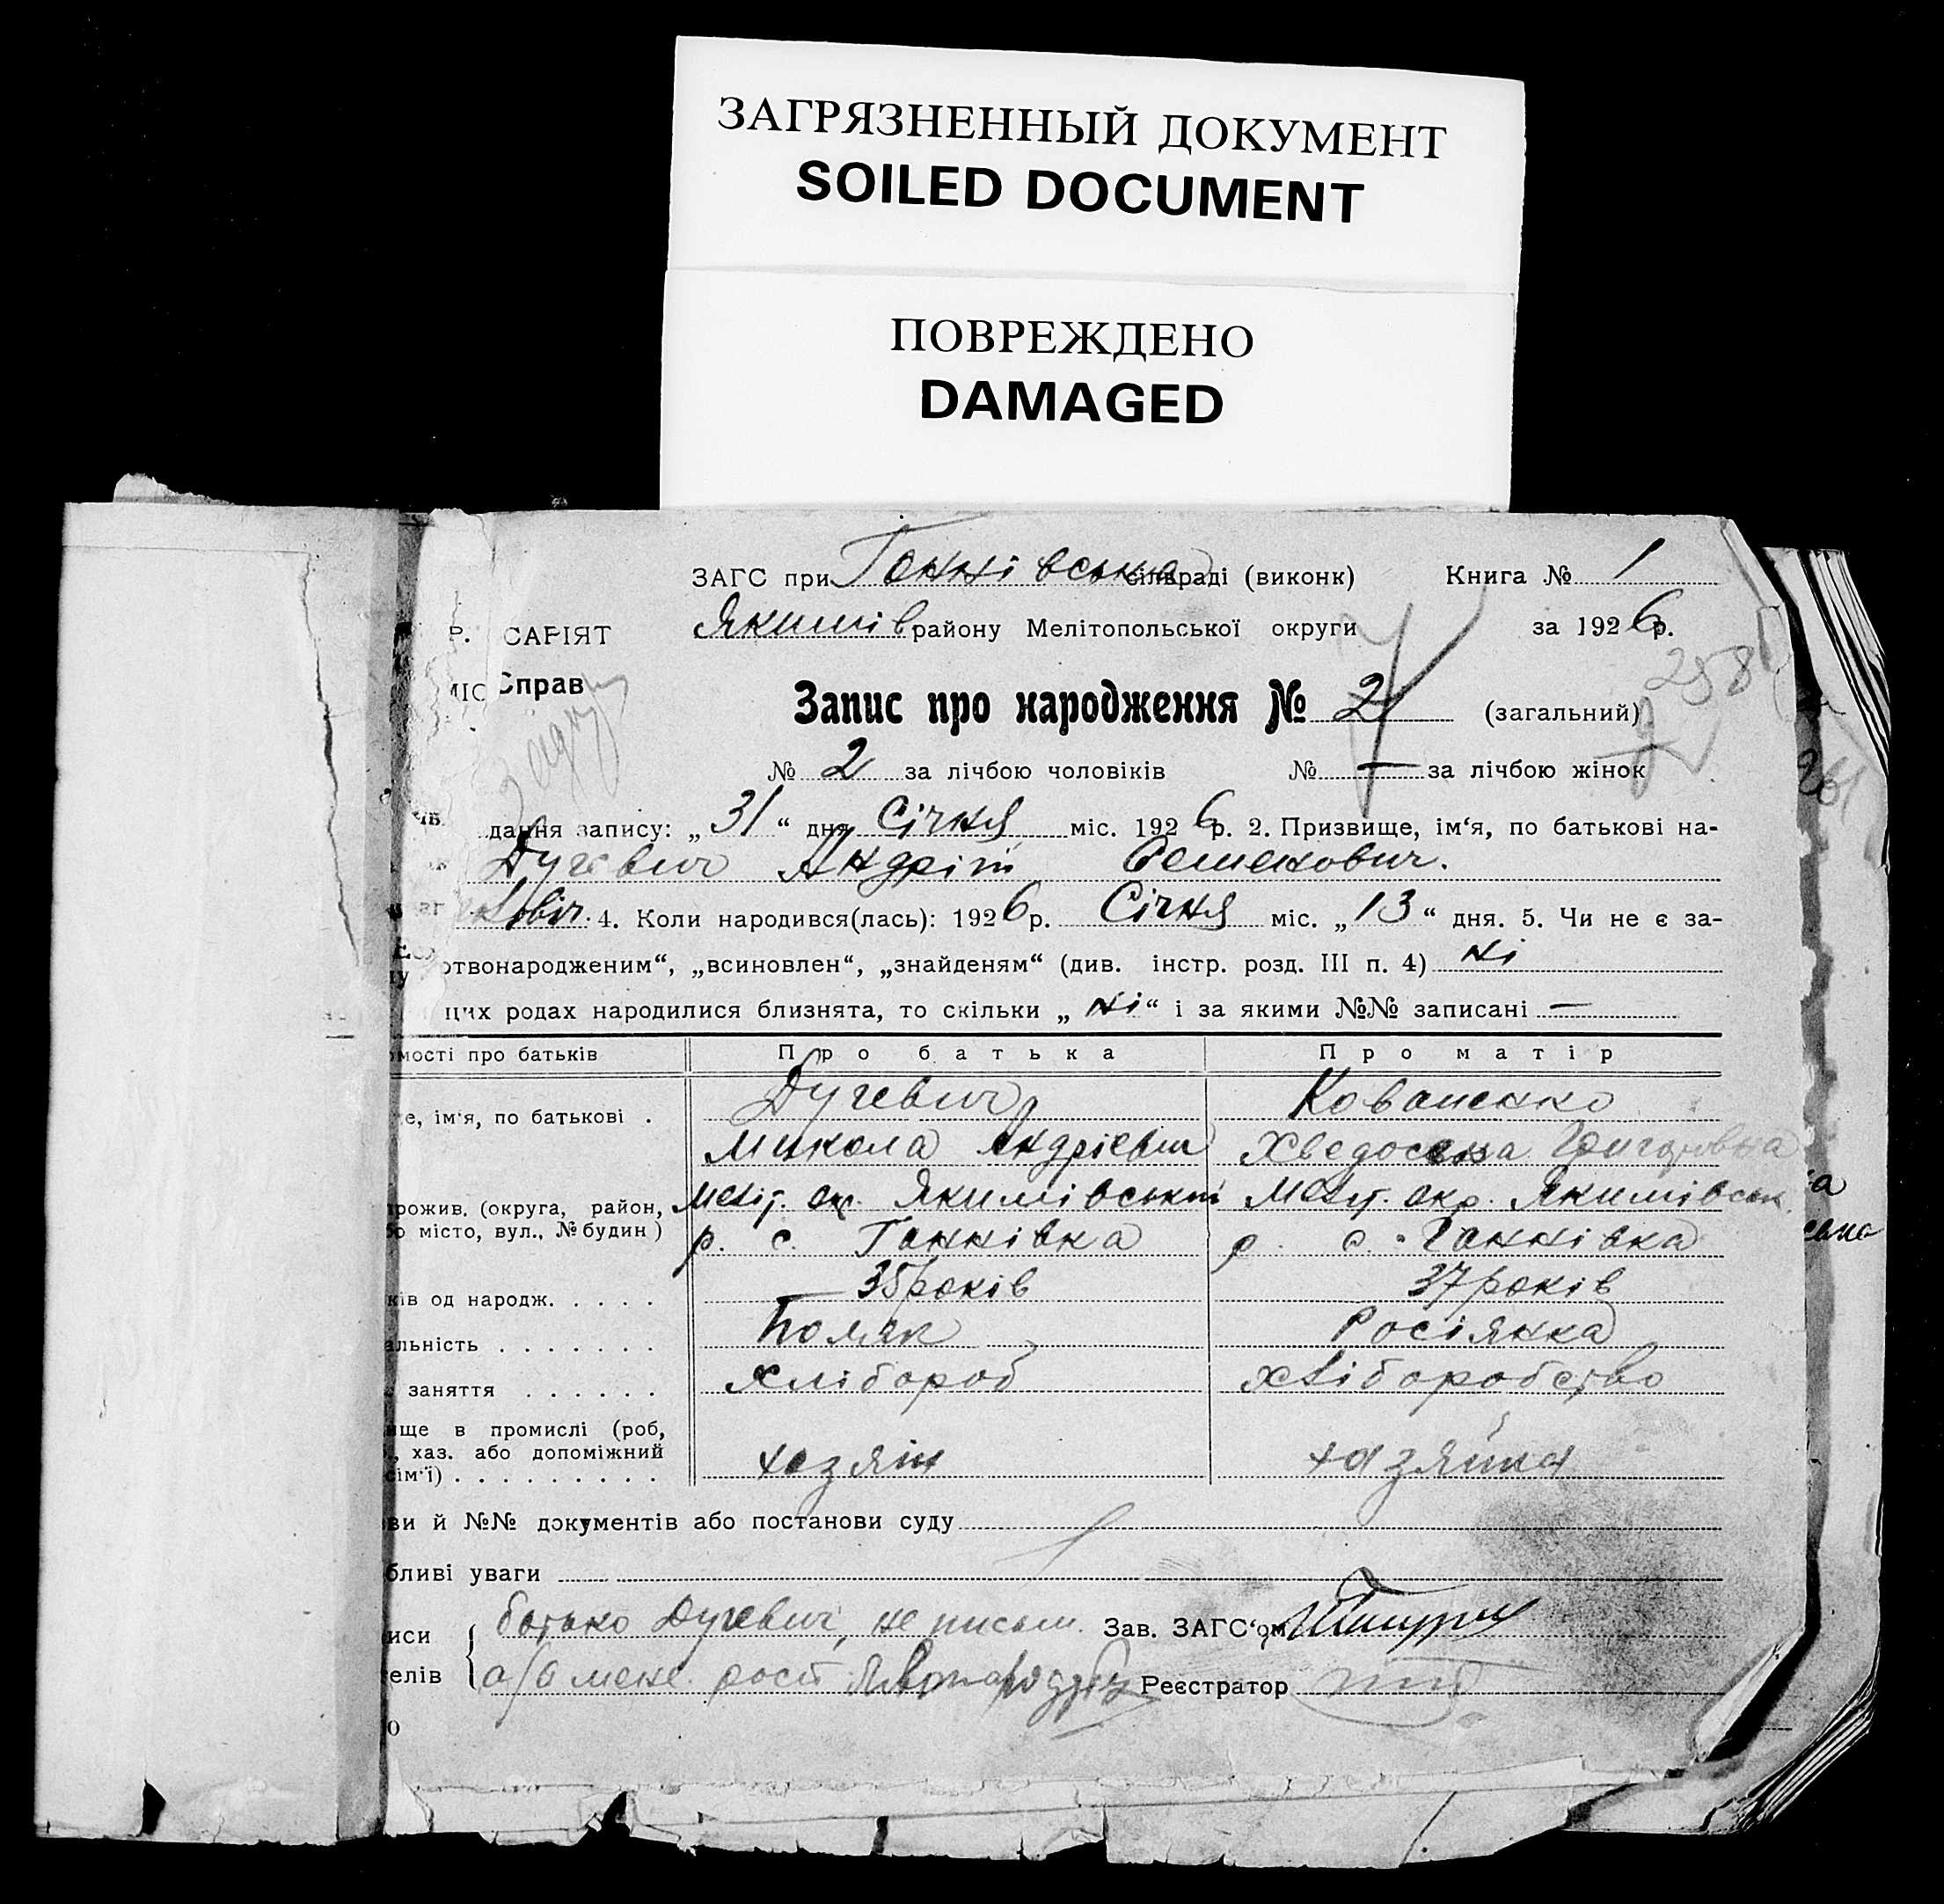 ЗАГРЯЗНЕННЫЙ ДОКУМЕНТ
SOILED DOCUMENT
ПОВРЕЖДЕНО
DAMAGED
ЗАГС при Ганнівська сільраді (виконк) Книга № 1
Якимів району Мелітопольської округи за 1926 р.
Р. САРІЯТ
Справ
258
Запис про народження № 2 (загальний)
№ 2 за лічбою чоловіків № — за лічбою жінок
дання запису: „31“ дня Січня міс. 1926 р. 2. Призвище, ім‘я, по батькові на-
Дучевич Андрій Семенович.
4. Коли народився(лась): 1926 р. Січня міс. „13“ дня. 5. Чи не є за-
ртвонародженим“, „всиновлен“, „знайденям“ (див. інстр. розд. III п. 4) ні
цих родах народилися близнята, то скільки „ні“ і за якими №№ записані —
омості про батьків Про батька Про матір
е, ім‘я, по батькові . Дучевич Коваленко
Микола Андрієвич Хведосина Григоровна
прожив. (округа, район, Меліт. ок. Якимівський Меліт. окр. Якимівськ.
бо місто, вул., № будин) р. с. Ганнівка р. с. Ганнівка
ків од народж. . . . . 35 років 37 років
альність . . . . . . . Поляк Росіянка
заняття . . . . . . хлібороб хліборобство
ище в промислі (роб,
., хаз. або допоміжний
сім‘ї) . . . . . . . . . хазяїн хазяйка
ви й №№ документів або постанови суду
бливі уваги
иси батько Дучевич, не письм. Зав. ЗАГС‘ом
елів Реєстратор